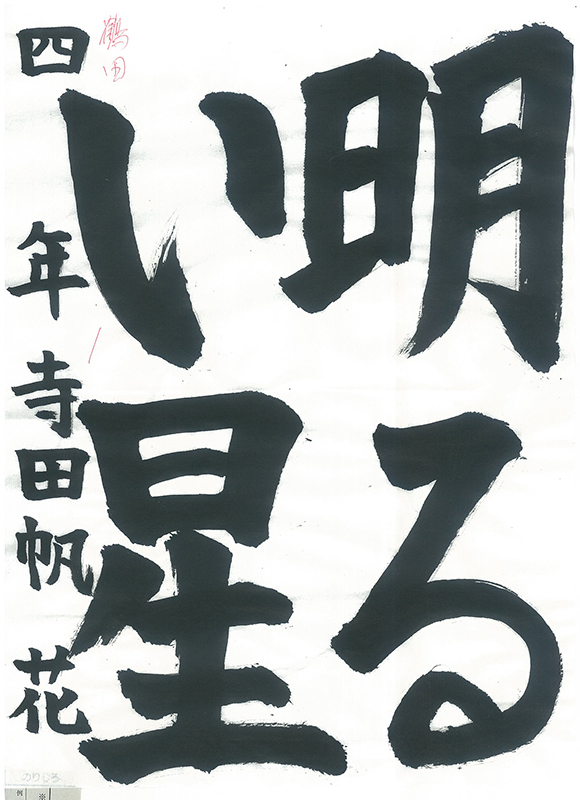 明る
い星
四年 寺田帆花
鶴田
のりしろ
例
※